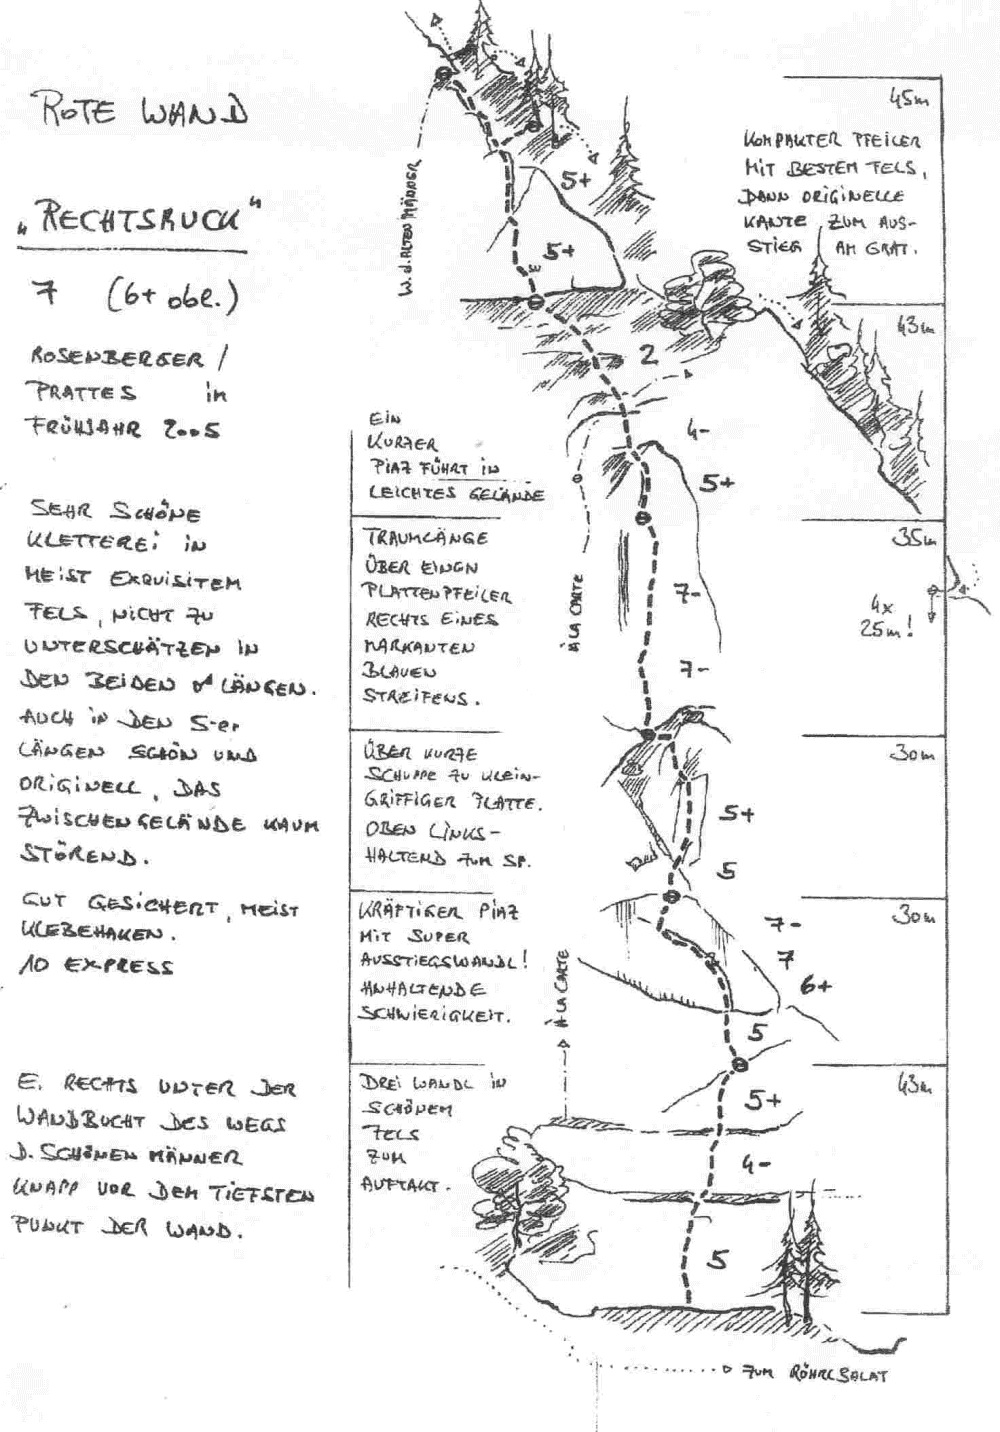 ROTE WAND
„RECHTSRUCK“
7 (6+ obl.)
ROSENBERGER /
PRATTES in
FRÜHJAHR 2005
SEHR SCHÖNE
KLETTEREi iN
MEiST EXQUiSiTEM
FELS, NiCHT ZU
UNTERSCHÄTZEN IN
DEN BEIDEN LÄNGEN.
AUCH iN DEN 5-er
LÄNGEN SCHÖN UND
ORiGiNELL, DAS
ZWiSCHENGELÄNDE KAUM
STÖREND.
GUT GESiCHERT, MEiST
KLEBEHAKEN.
10 EXPRESS
E. RECHTS UNTER DER
WANDBUCHT DES WEGS
D. SCHÖNEN MÄNNER
KNAPP VOR DEM TiEFSTEN
PUNKT DER WAND.
W. d. ALTEN MÄNNER
45m
KOMPAKTER PFEiLER
MiT BESTEM FELS,
DANN ORiGiNELLE
KANTE ZUM AUS-
STiEG AM GRAT.
5+
5+
SU
43m
2
4-
5+
EiN
KURZER
PiAZ FÜHRT iN
LEiCHTES GELÄNDE
35m
TRAUMLÄNGE
ÜBER EINEN
PLATTENPFEiLER
RECHTS EiNES
MARKANTEN
BLAUEN
STREiFENS.
À LA CARTE
7-
7-
4x
25m!
30m
ÜBER KURZE
SCHUPPE ZU KLEiN-
GRiFFiGER PLATTE.
OBEN LiNKS-
HALTEND ZUM SP.
5+
5
30m
KRÄFTiGER PiAZ
MiT SUPER
AUSSTiEGSWANDL!
ANHALTENDE
SCHWiERiGKEiT.
À LA CARTE
7-
7
6+
5
43m
DREi WANDL iN
SCHÖNEM
FELS
ZUM
AUFTAKT.
5+
4-
5
ZUM RÖHRLSALAT